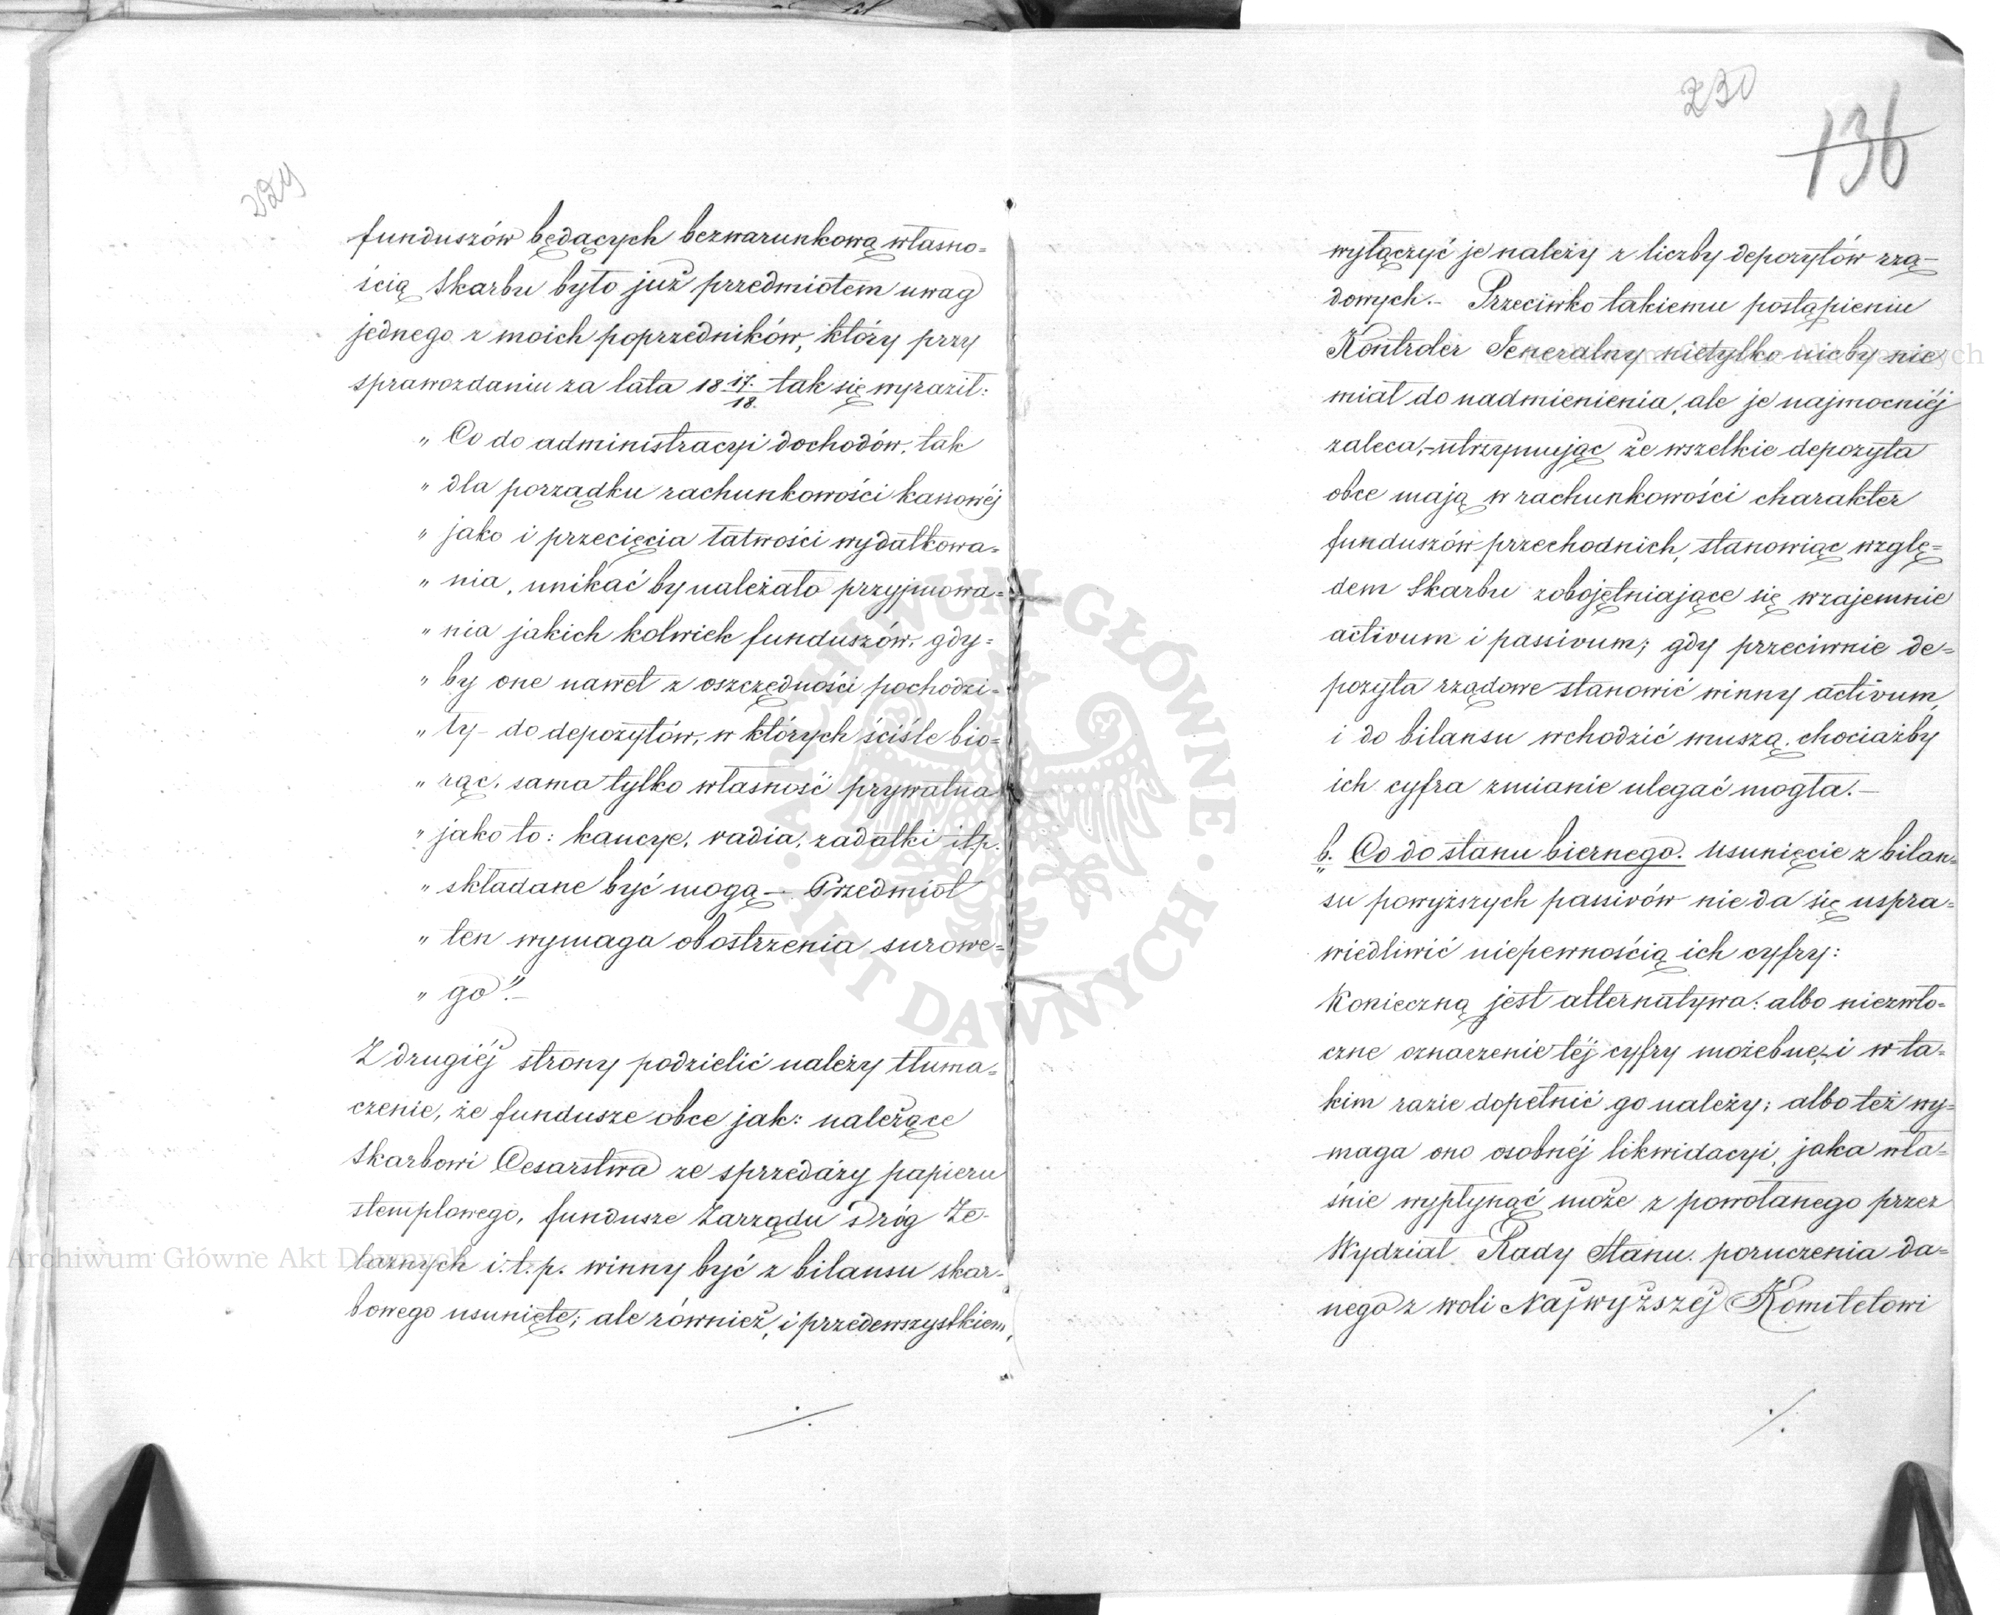 229
funduszów będących bezwarunkową własno=
ścią Skarbu było już przedmiotem uwag
jednego z moich poprzedników, który przy
sprawozdaniu za lata 18 17/18. tak się wyraził:
„ Co do administracyi dochodów, tak
„ dla porządku rachunkowości kassowéj
„ jako i przecięcia łatwości wydatkowa=
„ nia, unikać by należało przyjmowa=
„ nia jakich kolwiek funduszów, gdy=
„ by one nawet z oszczędności pochodzi=
„ ły – do depozytów, w których ściśle bio=
„ rąc, sama tylko własność prywatna
„ jako to: kaucye, vadia, zadatki itp.
„ składane być mogą – Przedmiot
„ ten wymaga obostrzenia surowe=
„ go".–
Z drugiéj strony podzielić należy tłuma=
czenie, że fundusze obce jak: należące
Skarbowi Cesarstwa ze sprzedaży papieru
stemplowego, fundusze Zarządu Dróg Że-
laznych i.t.p. winny być z bilansu skar-
bowego usunięte; ale również, i przedewszystkiem,
./.
230
136
wyłączyć je należy z liczby depozytów rzą-
dowych.– Przeciwko takiemu postąpieniu
Kontroler Jeneralny nietylko nicby nie
miał do nadmienienia, ale je najmocniéj
zaleca,– utrzymując że wszelkie depozyta
obce mają w rachunkowości charakter
funduszów przechodnich, stanowiąc wzglę=
dem Skarbu zobojętniające się wzajemnie
activum i passivum; gdy przeciwnie de=
pozyta rządowe stanowić winny activum,
i do bilansu wchodzić muszą, chociażby
ich cyfra zmianie ulegać mogła.–
b. Co do stanu biernego. Usunięcie z bilan=
su powyższych passivów nie da się uspra=
wiedliwić niepewnością ich cyfry:
Konieczną jest alternatywa: albo niezwło=
czne oznaczenie téj cyfry możebne,– i w ta=
kim razie dopełnić go należy; albo też wy=
maga ono osobnéj likwidacyi, jaka wła=
śnie wypłynąć może z powołanego przez
Wydział Rady Stanu poruczenia da=
nego z woli Najwyższéj Komitetowi
./.
ARCHIWUM GŁÓWNE · AKT DAWNYCH ·
Archiwum Główne Akt Dawnych
Archiwum Główne Akt Dawnych